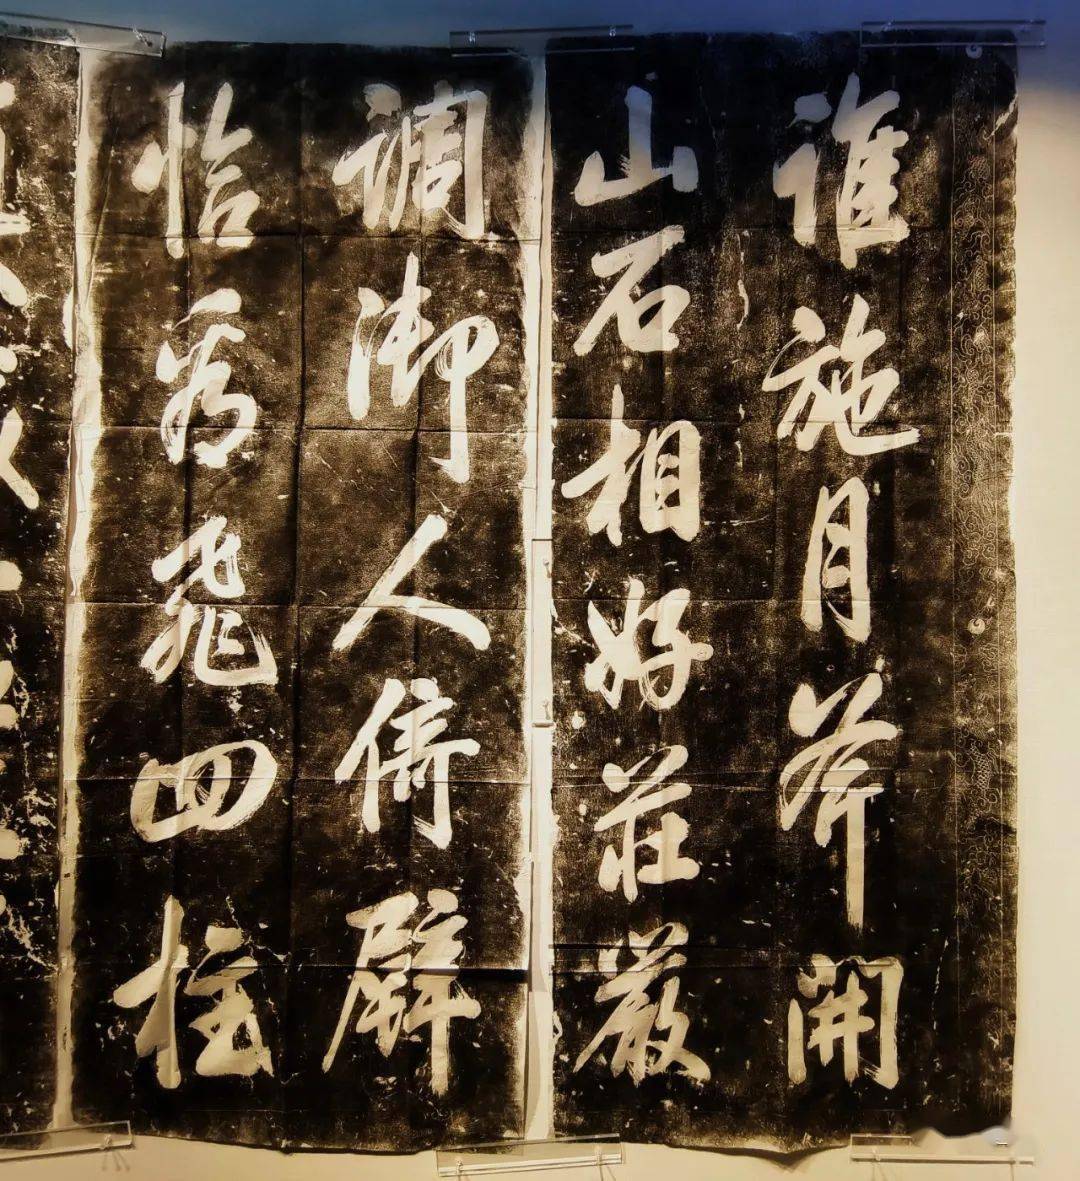 誰施月斧開
山石相好莊嚴
調御人倚辟
恰看飛四柱